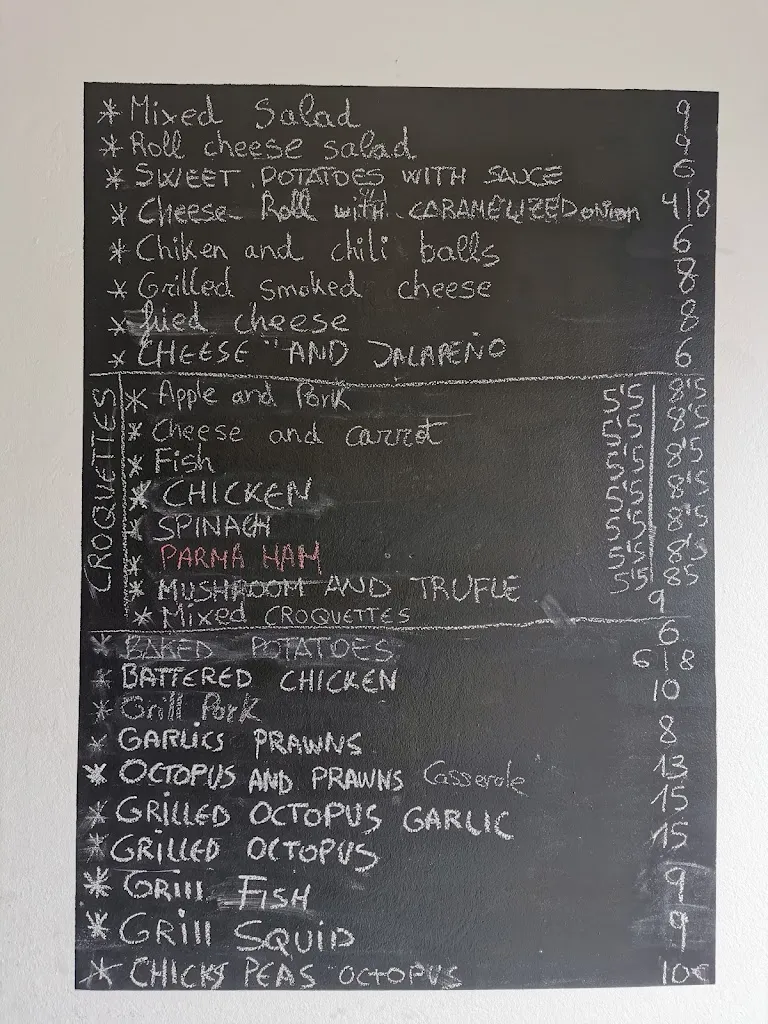 * Mixed Salad 9
* Roll cheese salad 9
* SWEET POTATOES WITH SAUCE 6
* Cheese Roll with CARAMELIZED onion 4|8
* Chiken and chili balls 6
* Grilled smoked cheese 8
* fried cheese 8
* CHEESE AND JALAPEÑO 6
CROQUETTES
* Apple and Pork 5'5 | 8'5
* Cheese and carrot 5'5 | 8'5
* Fish 5'5 | 8'5
* CHICKEN 5'5 | 8'5
* SPINACH 5'5 | 8'5
* PARMA HAM 5'5 | 8'5
* MUSHROOM AND TRUFLE 5'5 | 85
* Mixed CROQUETTES 9
* BAKED POTATOES 6
* BATTERED CHICKEN 6|8
* Grill Pork 10
* GARLICS PRAWNS 8
* OCTOPUS AND PRAWNS Casserole 13
* GRILLED OCTOPUS GARLIC 15
* GRILLED OCTOPUS 15
* GRill FISH 9
* GRill SQUID 9
* CHICKS PEAS OCTOPUS 10€